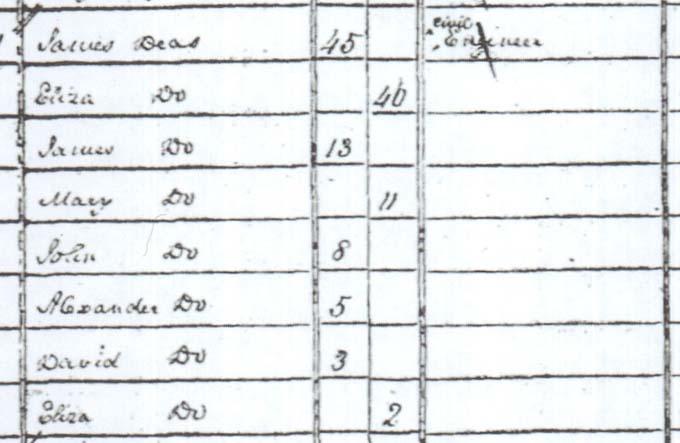 James Deas 45 civil Engineer
Eliza Do 40
James Do 13
Mary Do 11
John Do 8
Alexander Do 5
David Do 3
Eliza Do 2